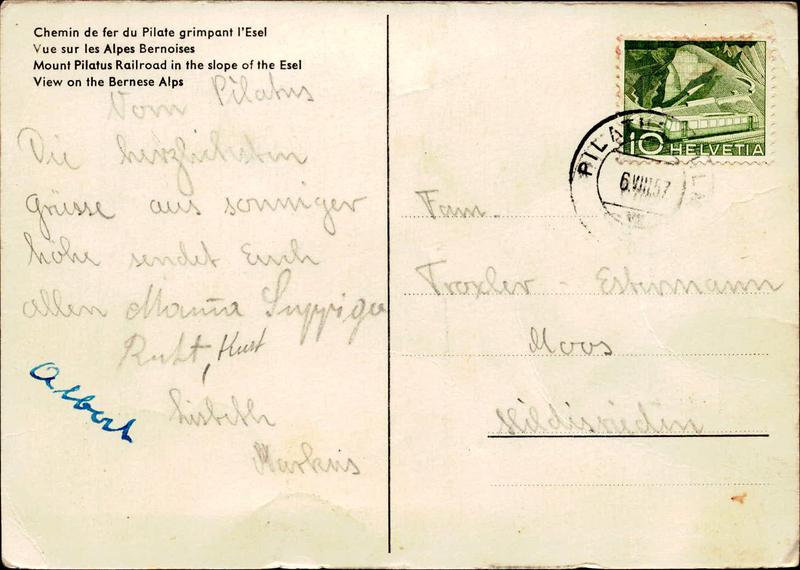 Chemin de fer du Pilate grimpant l'Esel
Vue sur les Alpes Bernoises
Mount Pilatus Railroad in the slope of the Esel
View on the Bernese Alps
Vom Pilatus
Die herzlichsten
Grüsse aus sonniger
Höhe sendet Euch
allen Mama Suppiger
Kurt
Albert
Lisbeth
Markus
10 HELVETIA
PILAT
6.VIII.57
Fam.
Troxler - Estermann
Moos
Hildisrieden